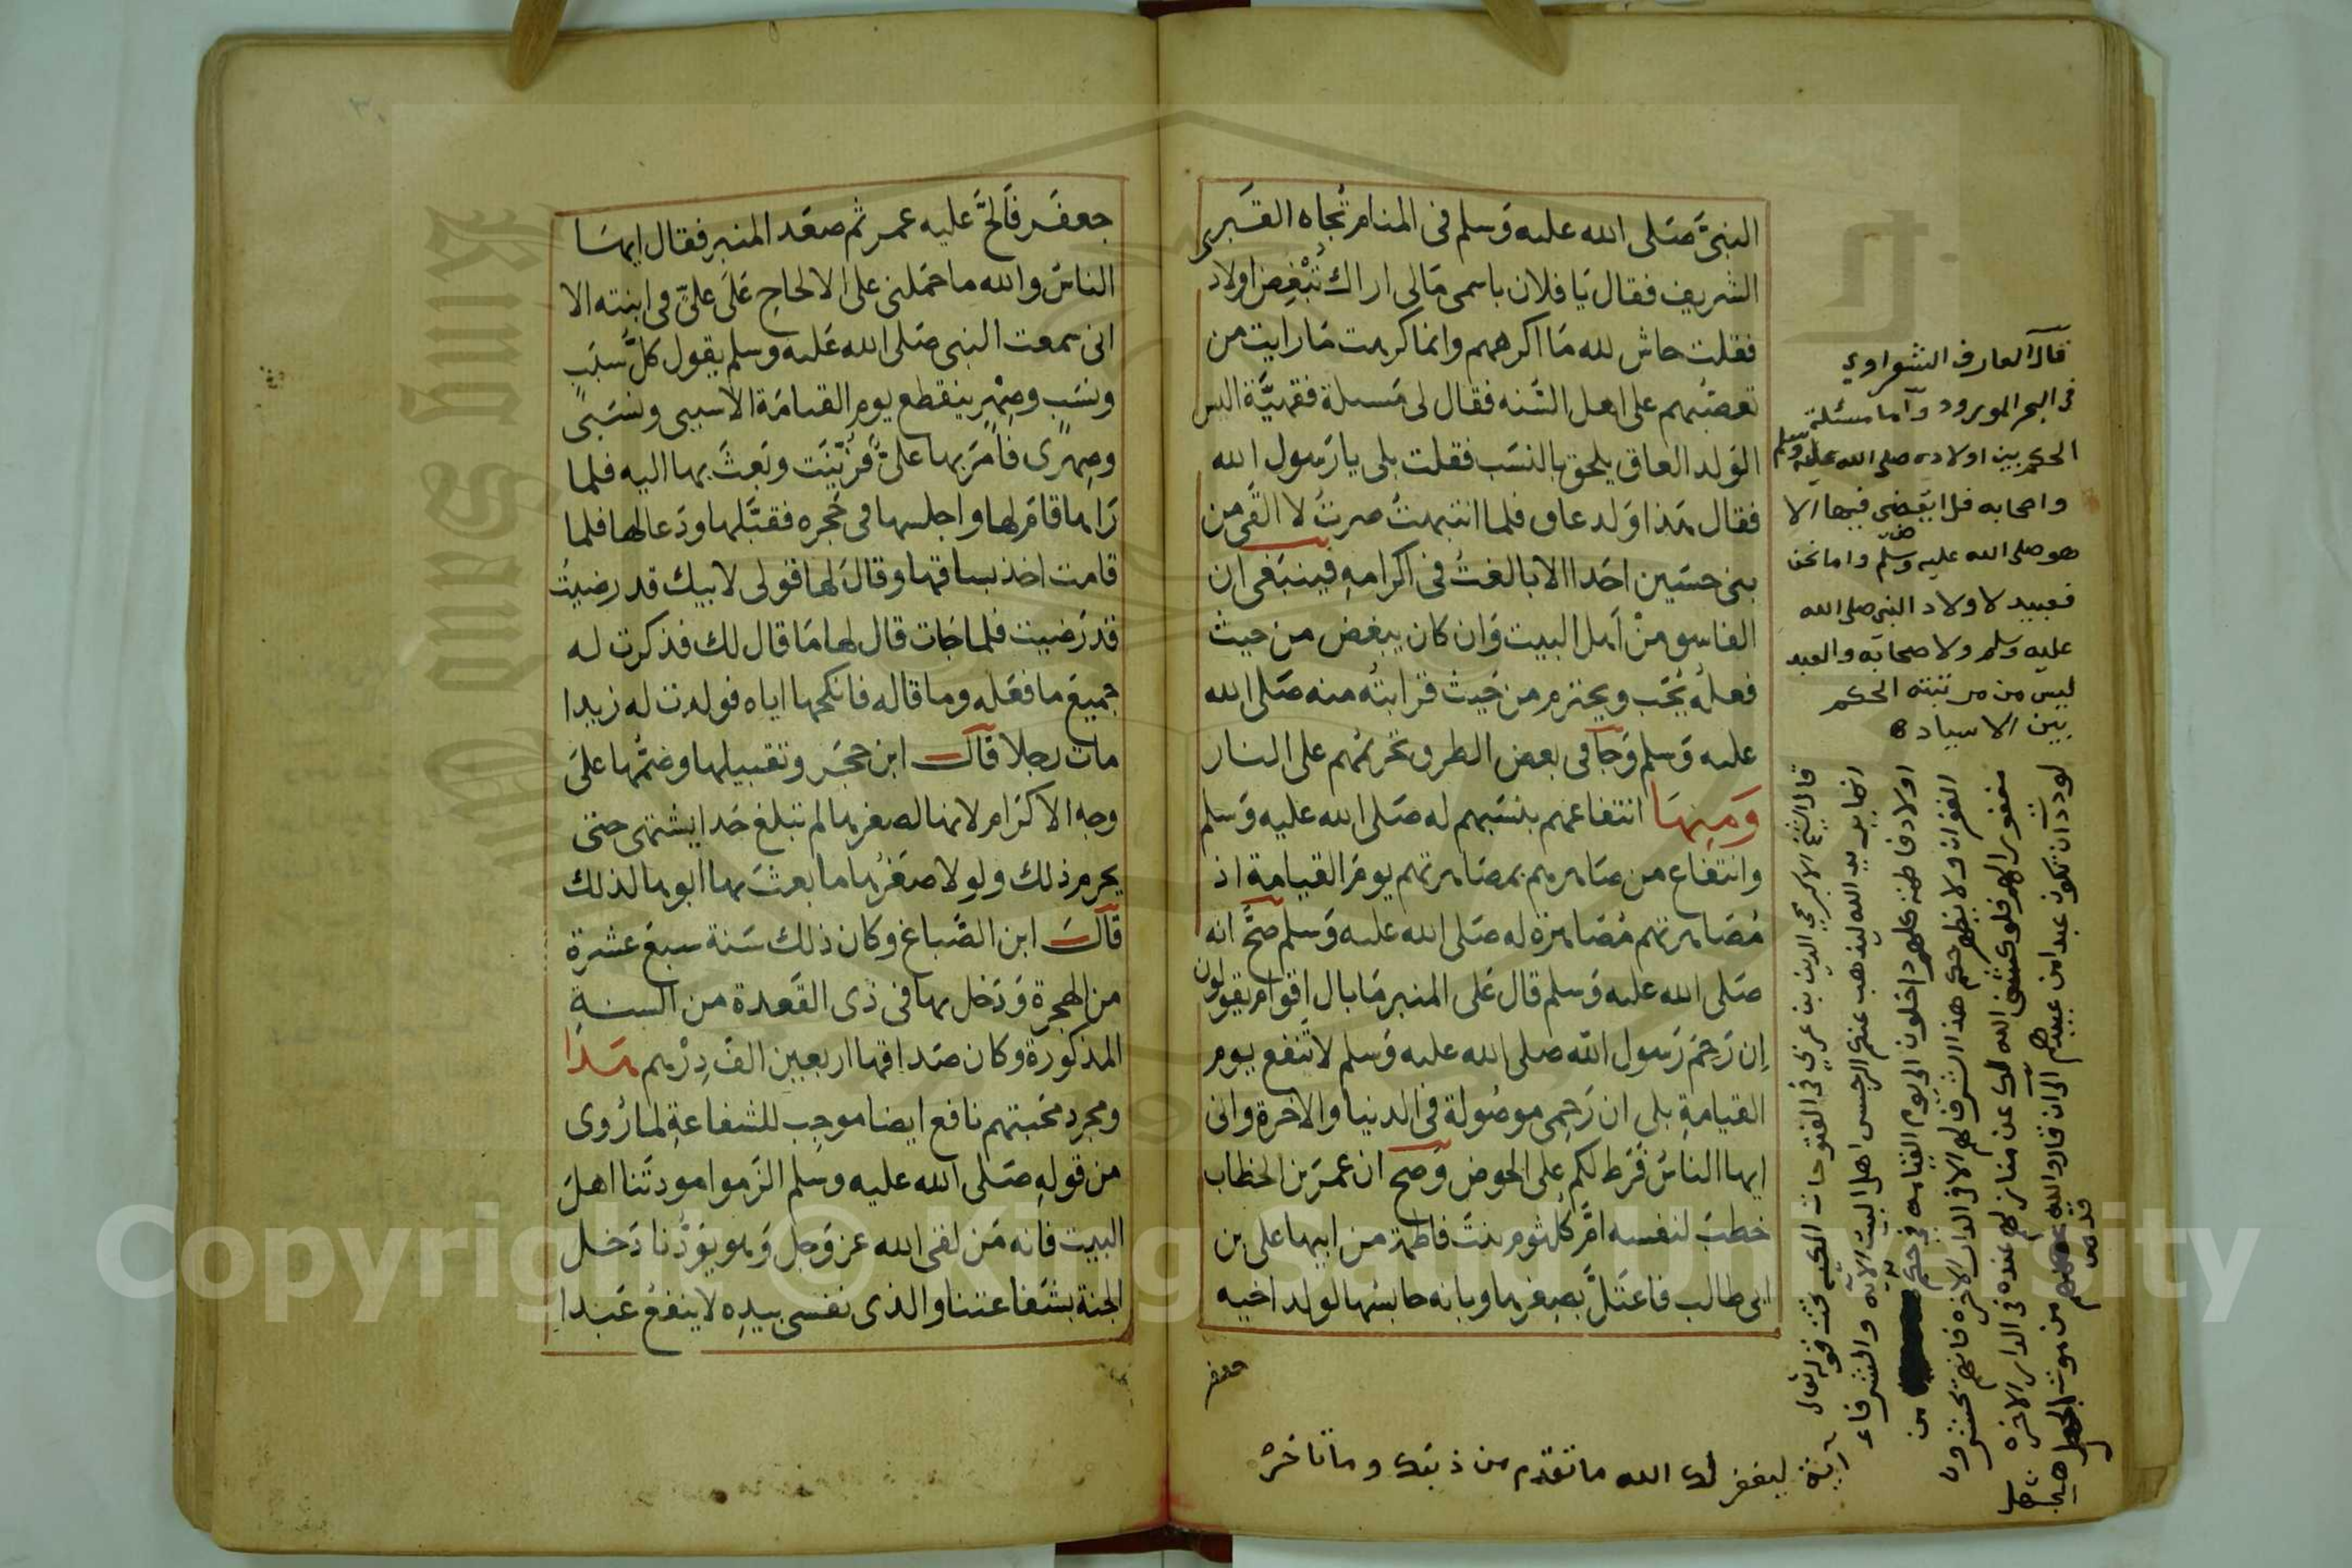 النبىَّ صَلى الله عليه وَسلم فى المنام تُجَاه القَبر
الشريف فقال يَا فلان باسمى مَالى اراك تُبْغِض اولادى
فقلت حاش لله مَا اكرههم وانما كرهت مَا رايت من
تعصّبهم على اهل السُّنه فقال لى مَسئلة فقهيَّة اليس
الوَلد العاق يلحق بالنسَب فقلت بلى يا رَسول الله
فقال هَذا وَلد عاق فلما انتبهتُ صرتُ لا القَى من
بنى حسَين احَدا الا بالغتُ فى اكرامهِ فينبَغى ان
الفاسق منْ اَهل البيت وَان كان يبغض من حيث
فعلُه يُحَب ويحترم من حَيث قرابتُه منه صَلى الله
عليه وَسلم وَجَا فى بعض الطرق تحريمُهم على النار
وَمِنهَا انتفاعهم بنسَبهم له صَلى الله عليه وَسلم
وانتفاع من صَاهرهم بمصَاهرتهم يومَ القيامة اذ
مُصَاهرتهم مُصَاهرة له صَلى الله عليه وَسلم صَحَّ انه
صَلى الله عليه وَسلم قال عَلى المنبر مَا بال اقوام يقولون
اِن رَحِمَ رَسول الله صلى الله عليه وَسلم لا تنفع يوم
القيامةِ بلى ان رَحِمى موصُولة فى الدنيا والاخرة وانى
ايها الناسُ فَرَط لكم على الحوض وَصح ان عمَر بن الخطاب
خطبَ لنفسه امَّ كلثوم بنتَ فاطمة من ابيها على بن
ابى طالب فاعتَلَّ بصِغرها وبانه حابسُها لولد اخيه
جعفر
قال العارف الشعراوي
فى البحر المورود وآما مسئلة
الحكم بين اولاده صلى الله عليه وسلم
واصحابه فلا يقضى فيها الا
هو صلى الله عليه وسلم واما نحن
فعبيد لاولاد النبى صلى الله
عليه وسلم ولاصحابه والعبد
ليس من مرتبته الحكم
بين الاسياد ه
قال الشيخ الاكبر محي الدين بن عربي فى الفتوحات المكية تحت قوله تعالى
انما يريد الله ليذهب عنكم الرجس اهل البيت الآية والشرفاء
اولاد فاطمة كلهم داخلون الى يوم القيامة فى حكم آية من
الغفران ولا يظهر حكم هذا الشرف لهم الا فى الدار الاخرة فانهم يحشرون
مغفورا لهم
ليغفر لك الله ما تقدم من ذنبك وما تاخر
جعفَر فَالحَّ عليه عمر ثم صعَد المنبر فقال ايهَا
الناسُ والله ما حمَلنى على الالحاح عَلَى علىّ فى ابنته الا
انى سمعت النبى صَلى الله عَليه وسلم يقول كلّ سَبَبٍ
ونسَب وصِهْرٍ ينقطع يوم القيامَة الا سببى ونسَبى
وصِهرى فامَر بها علىٌّ فزُيّنَت وبَعثَ بها اليه فلما
رَاها قامَ لها واجلسها فى حَجره فقبَّلها ودَعا لها فلما
قامت اخذ بساقها وقالَ لها قولى لابيك قد رضيتُ
قد رَضيت فلما جَات قال لها مَا قال لك فذكرت له
جميعَ ما فعَله وما قاله فانكحها اياه فولدت له زيدا
مات رجلا قال ابن حجَر وتقبيلها وضمُّها علَى
وجه الاكرَام لانها لصغرها لم تبلغ حَدا يشتهى حتى
يحرم ذلك ولولا صغَرُها ما بعثَ بها ابوها لذلك
قال ابن الصَّباغ وكان ذلك سَنة سبعَ عشرة
من الهجرة وَدَخل بها فى ذى القَعدة من السنةِ
المذكورة وكان صَداقها اربعين الفَ دِرْهم هَذا
ومجرد محَبتهم نافع ايضا موجِب للشفاعةِ لما رُوى
من قولهِ صَلى الله عليه وسلم الزَموا مودتَنا اهلَ
البيت فانه مَن لقى الله عز وَجل وَهو يَوَدُّنا دَخل
الجنة بشَفاعتنا والذى نفسى بيدِه لا ينفعُ عَبدا
Copyright © King Saud University